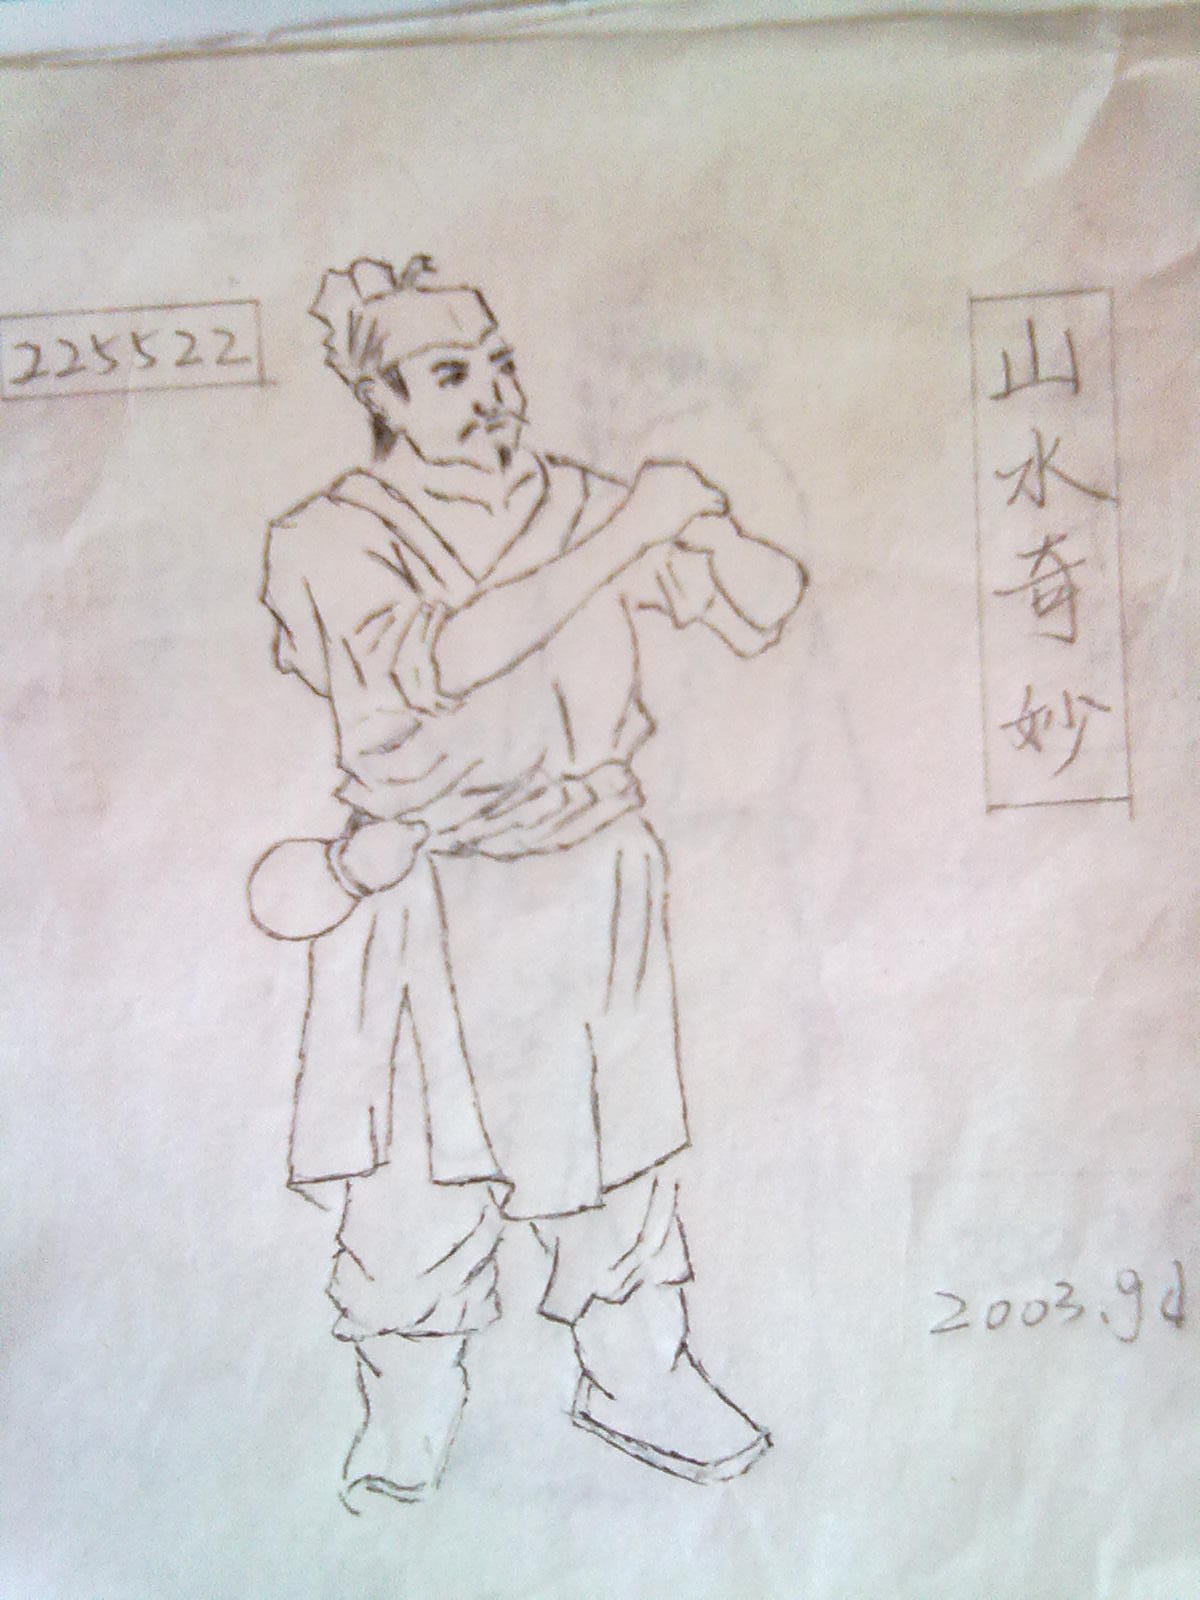 225522
山水奇妙
2003.9d